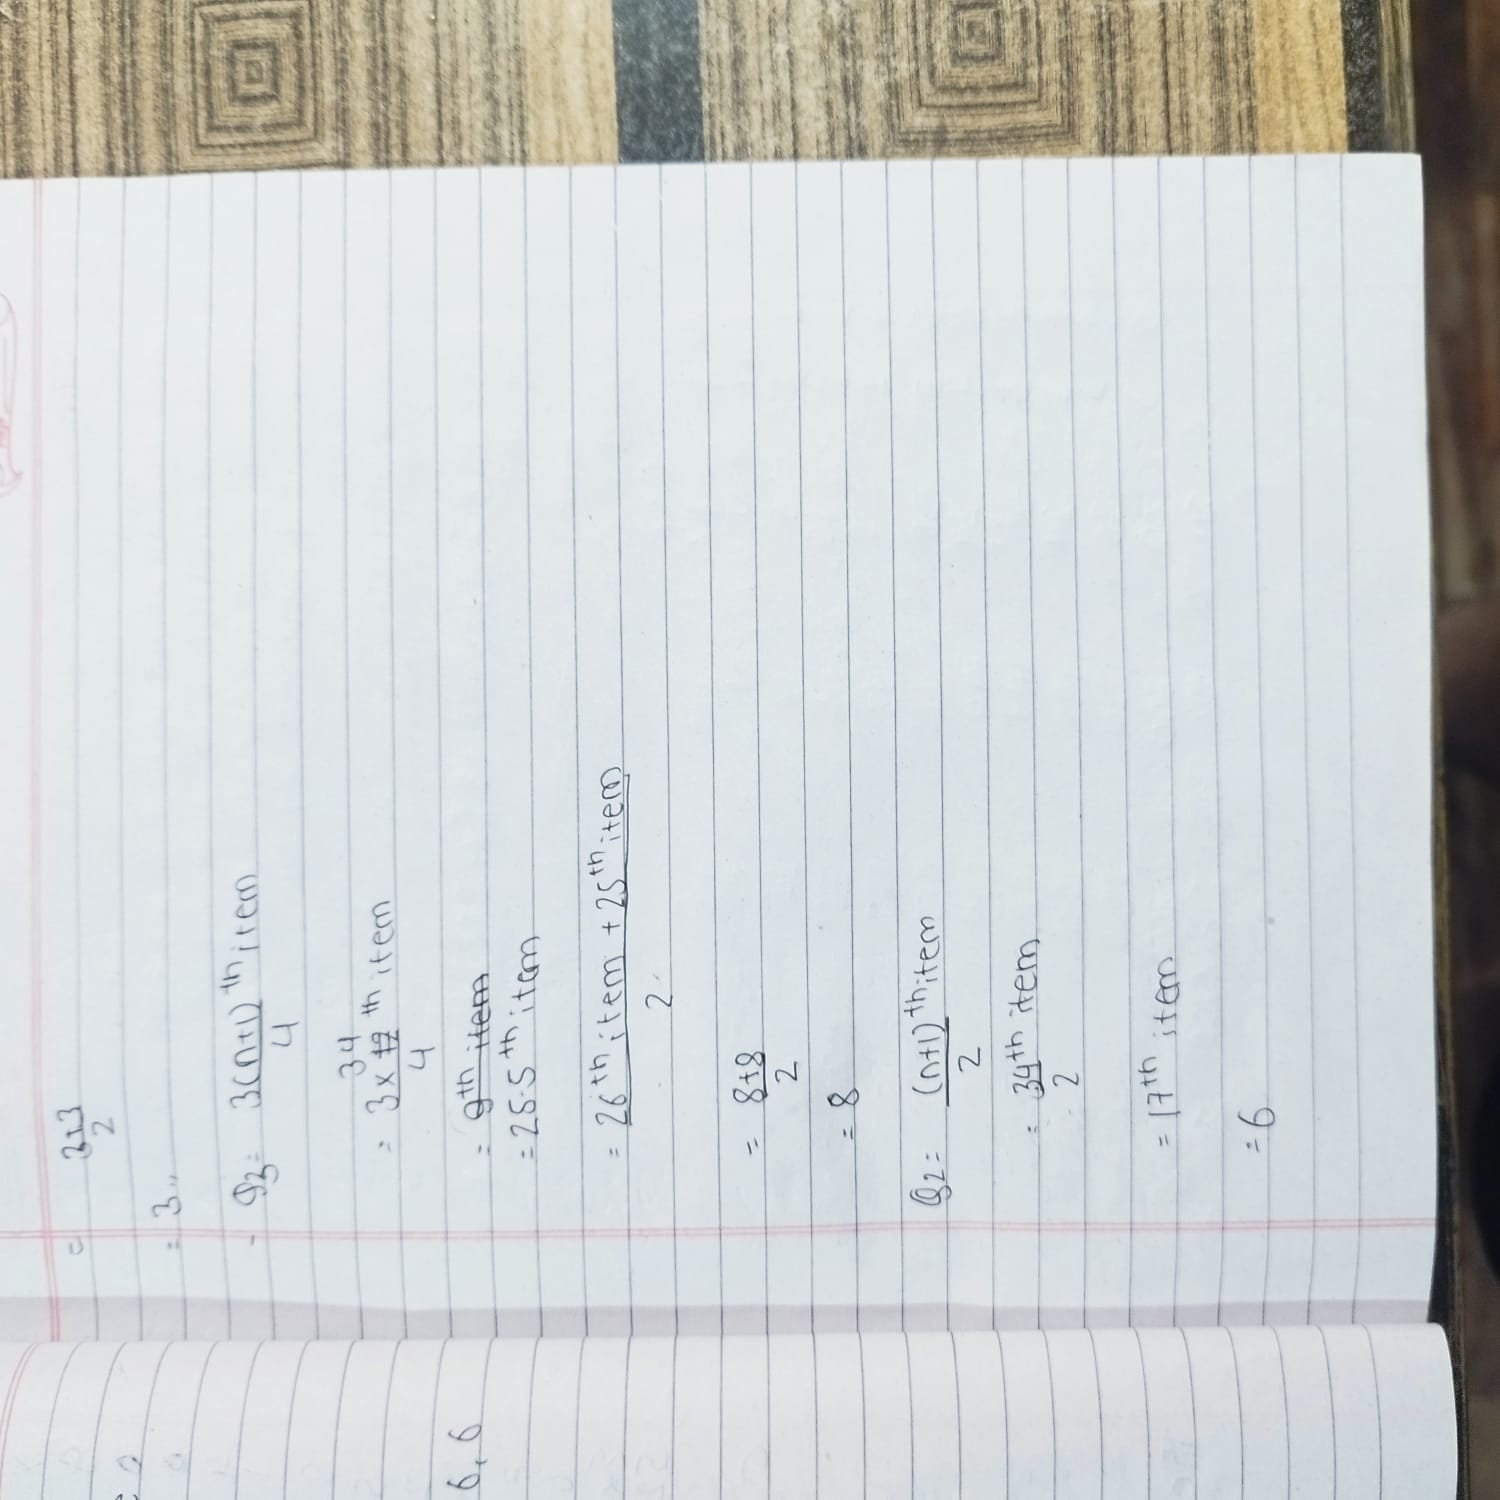 6, 6
= 3+3
2
= 3
Q3 = 3(n+1)th item
4
34
= 3 x 12 th item
4
= 9th item
= 25.5th item
= 26th item + 25th item
2
= 8+8
2
= 8
Q2 = (n+1)th item
2
= 34th item
2
= 17th item
= 6